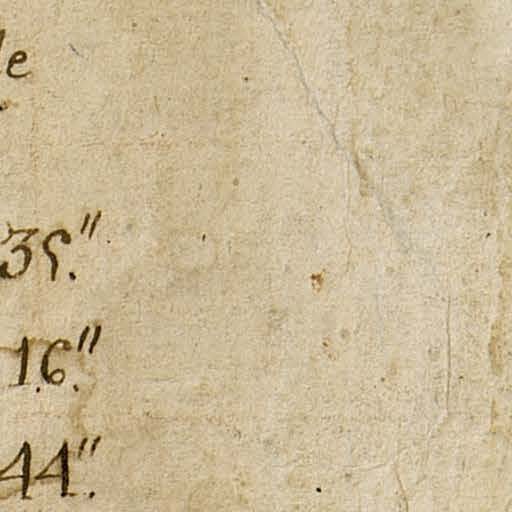 le
35."
16."
44."